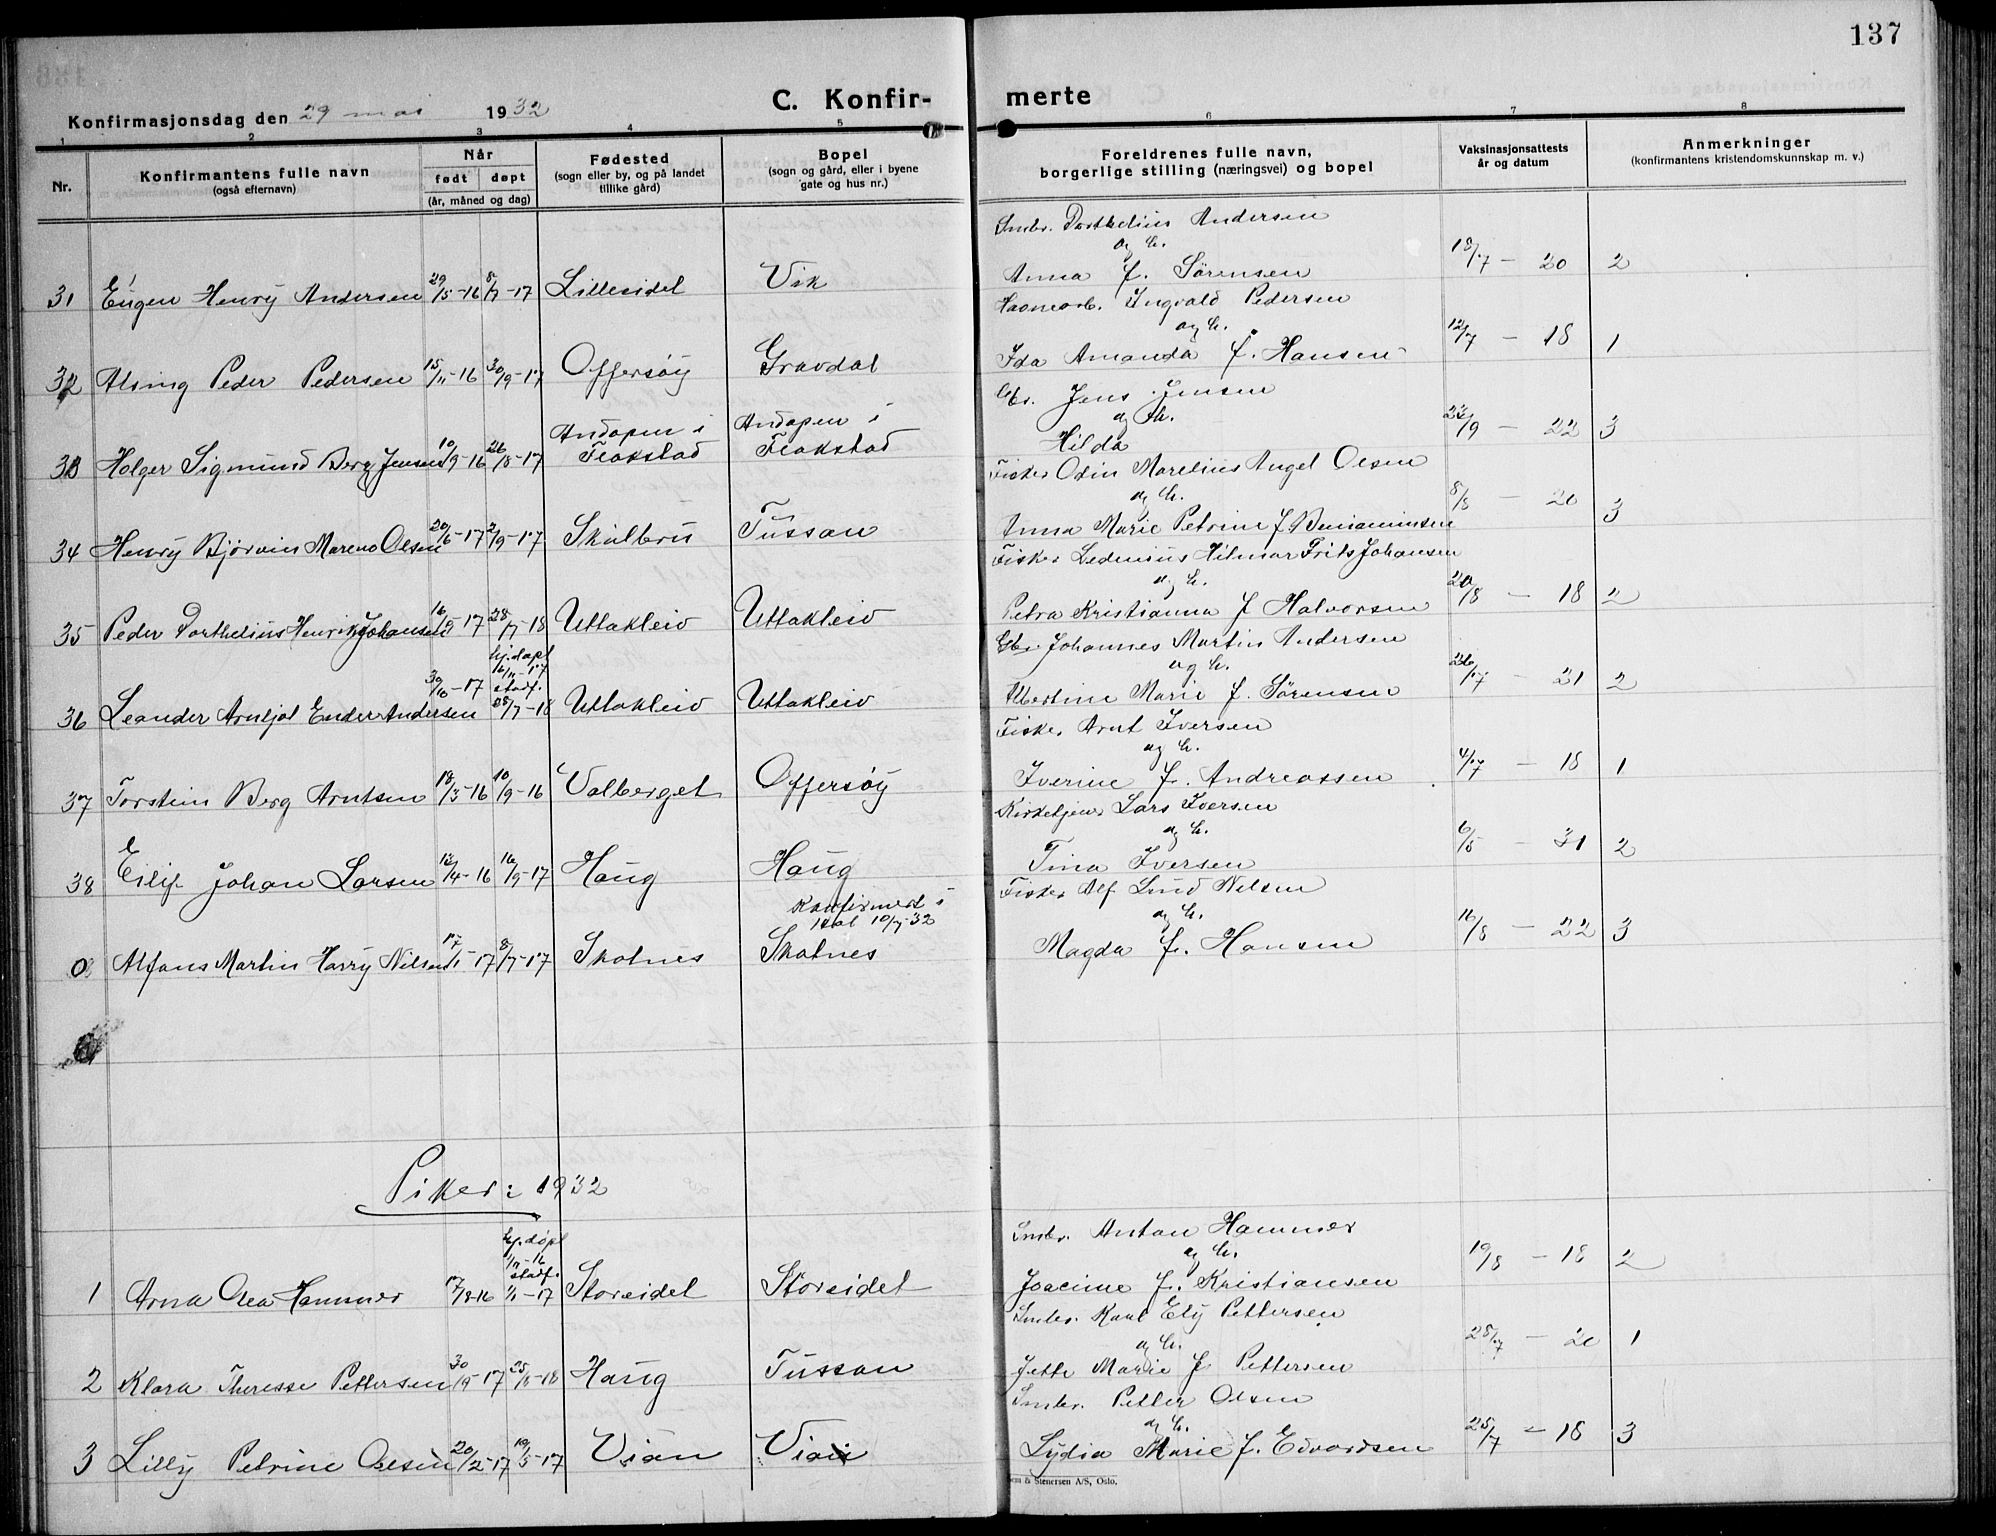 137
C. Konfirmerte
Konfirmasjonsdag den 29 mai 1932
1 2 3 4 5 6 7 8
Nr.
Konfirmantens fulle navn
(også efternavn)
Når
født døpt
(år, måned og dag)
Fødested
(sogn eller by, og på landet
tillike gård)
Bopel
(sogn og gård, eller i byene
gate og hus nr.)
Foreldrenes fulle navn,
borgerlige stilling (næringsvei) og bopel
Vaksinasjonsattests
år og datum
Anmerkninger
(konfirmantens kristendomskunnskap m. v.)
Smbr. Dorthelius Andersen
og h.
31 Eugen Henry Andersen 29/5-16 8/7-17 Lilleeidet Vik Anna f. Sørensen 18/7 - 20 2
Havnearb. Ingvald Pedersen
og h.
32 Alsing Peder Pedersen 15/11-16 30/9-17 Offersøy Gravdal Ida Amanda f. Hansen 12/7 - 18 1
Gbr. Jens Jensen
og h.
33 Holger Sigmund Berg Jensen 10/9-16 26/8-17 Andopen i Flakstad Andopen i Flakstad Hilda 23/9 - 22 3
Fisker Odin Marelius Angel Olsen
og h.
34 Henry Bjørvin Mareno Olsen 20/6-17 2/9-17 Skulbru Tussan Anna Marie Petrine f. Benjaminsen 8/8 - 20 3
Fisker Ledenius Hilmar Frits Johansen
og h.
35 Peder Dorthelius Henrik Johansen 16/5-17 28/7-18 Uttakleiv Uttakleiv Petra Kristianna f. Halvorsen 20/8 - 18 2
Gbr. Johannes Martin Andersen
og h.
hj. døpt
16/11-17
stadf.
36 Leander Arnljot Ender Andersen 30/10-17 28/7-18 Uttakleiv Uttakleiv Albertine Marie f. Sørensen 26/7 - 21 2
Fisker Arnt Iversen
og h.
37 Torstein Berg Arntsen 18/3-16 10/9-16 Valberget Offersøy Iverine f. Andreassen 4/7 - 18 1
Kirketjener Lars Iversen
og h.
38 Eilif Johan Larsen 13/4-16 16/9-17 Haug Haug Tina Iversen 6/5 - 31 2
Fisker Alf Lund Nilsen
og h.
Konfirmert i
Hol 10/7-32
0 Alfons Martin Harry Nilsen 17/1-17 8/7-17 Skotnes Skotnes Magda f. Hansen 16/8 - 22 3
Piker: 1932
Smbr. Anton Hammer
og h.
hj. døpt
1/11-16
stadf.
1 Arna Aea Hammer 17/8-16 1/1-17 Storeidet Storeidet Joacime f. Kristiansen 19/8 - 18 2
Smbr. Karl Ely Pettersen
og h.
2 Klara Theresse Pettersen 30/9-17 25/8-18 Haug Tussan Jette Marie f. Pettersen 28/7 - 20 1
Smbr. Petter Olsen
og h.
3 Lilly Petrine Olsen 20/2-17 19/5-17 Vian Vian Lydia Marie f. Edvardsen 25/7 - 18 3
& Stenersen A/S, Oslo.